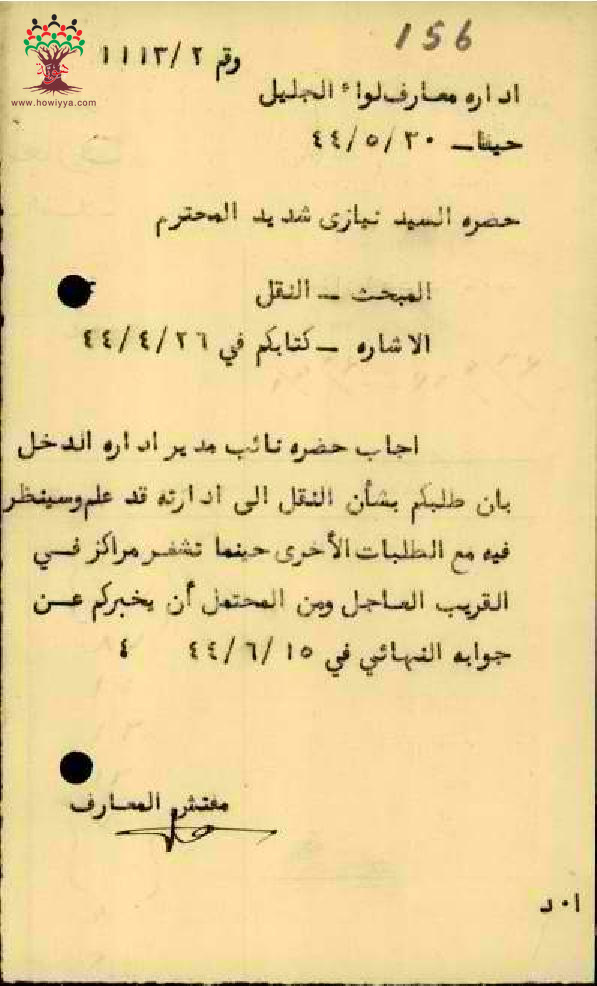 156
www.howiyya.com
رقم ١١١٣/٢
اداره معارف لواء الجليل
حيفا - ٤٤/٥/٣٠
حضره السيد نيازى شديد المحترم
المبحث - النقل
الاشاره - كتابكم في ٤٤/٤/٢٦
اجاب حضره نائب مدير اداره الدخل
بان طلبكم بشأن النقل الى ادارته قد علم وسينظر
فيه مع الطلبات الأخرى حينما تشغر مراكز في
القريب العاجل ومن المحتمل أن يخبركم عن
جوابه النهائي في ٤٤/٦/١٥ ٤
مفتش المعارف
ا٠د